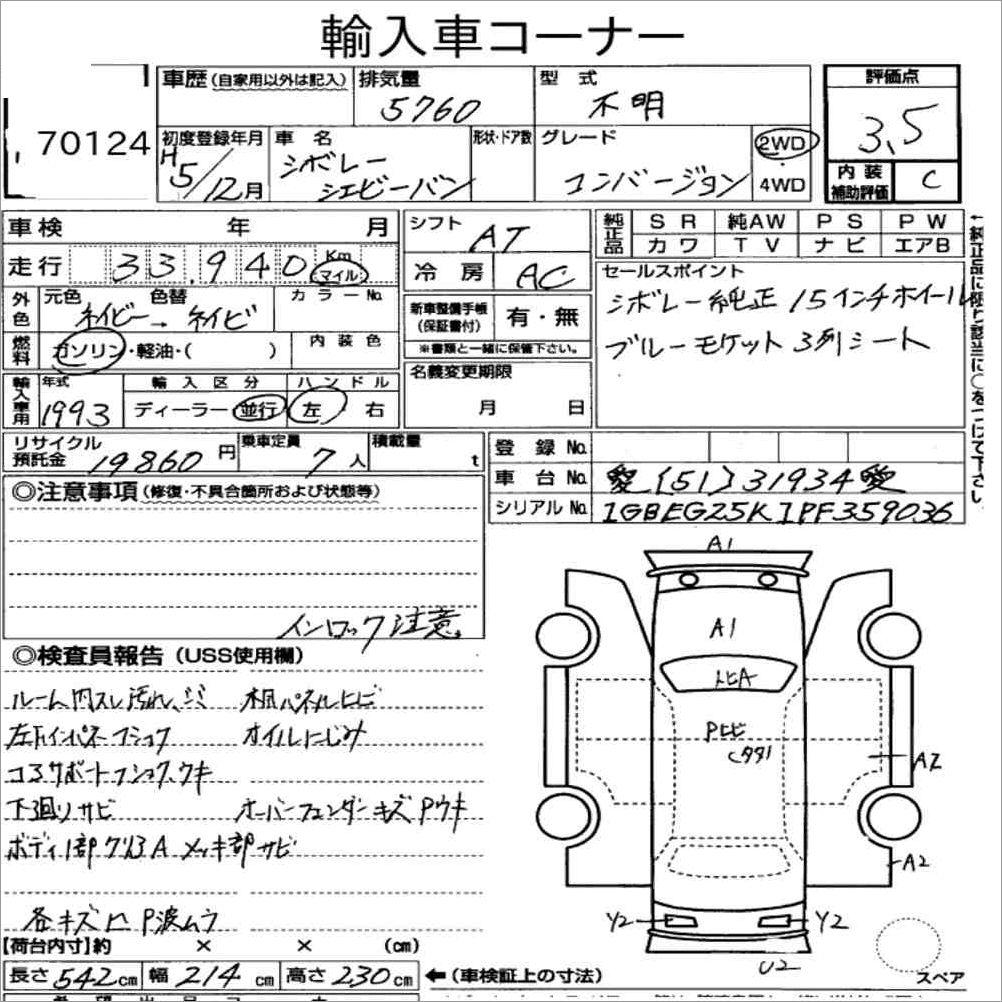 輸入車コーナー
70124
車歴 (自家用以外は記入)
排気量 5760
型式 不明
評価点 3.5
初度登録年月 H5/12月
車名 シボレー シェビーバン
形状・ドア数
グレード コンバージョン
2WD
4WD
内装補助評価 C
車検 年 月
走行 33,940 Km マイル
外色 元色 ネイビー → 色替 ネイビ
カラーNo.
燃料 ガソリン・軽油・( )
内装色
輸入車用 年式 1993
輸入区分 ディーラー 並行
ハンドル 左 右
シフト AT
冷房 AC
新車整備手帳 (保証書付) 有・無
※書類と一緒に保管下さい。
名義変更期限
月 日
純正品 SR 純AW PS PW
カワ TV ナビ エアB
セールスポイント
シボレー純正 15インチホイール
ブルーモケット 3列シート
リサイクル預託金 19860円
乗車定員 7人
積載量 t
登録No.
車台No. 愛[51]31934愛
シリアルNo. 1GBEG25K1PF359036
◎注意事項 (修復・不具合箇所および状態等)
インロック注意。
◎検査員報告 (USS使用欄)
ルーム内スレ汚れ、シミ 木目パネルヒビ
オイルにじみ
コアサポートフショク、サキ
下廻りサビ オーバーフェンダーキズPウキ
メッキ部サビ
各キズ凹 P波ムラ
【荷台内寸】約 × × (cm)
長さ 542cm 幅 214cm 高さ 230cm
←(車検証上の寸法)
A1
A1
トビA
Pヒビ
A2
A2
Y2
Y2
U2
スペア